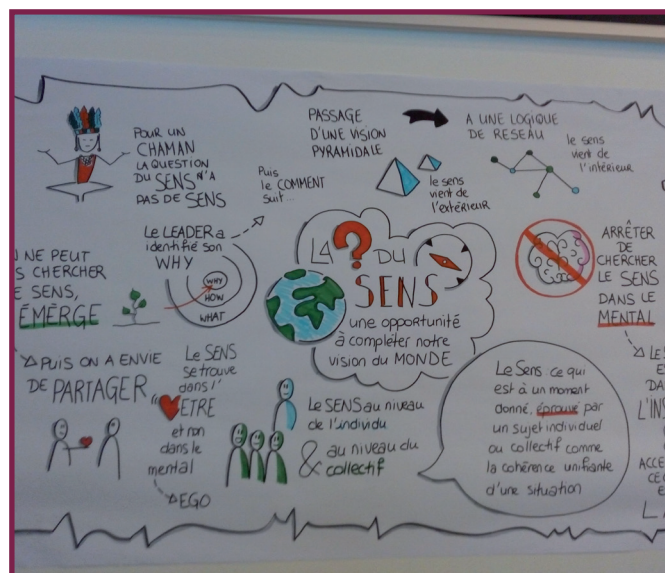 POUR UN
CHAMAN
LA QUESTION
DU SENS N'A
PAS DE SENS
PASSAGE
D'UNE VISION
PYRAMIDALE
le sens
vient de
l'extérieur
A UNE LOGIQUE
DE RESEAU
le sens
vient de
l'intérieur
Le LEADER a
identifié son
WHY
Puis
le COMMENT
suit...
WHY
HOW
WHAT
LA ? DU
SENS
une opportunité
à compléter notre
vision du MONDE
ARRÊTER
DE
CHERCHER
LE SENS
DANS LE
MENTAL
NE PEUT
CHERCHER
SENS,
ÉMERGE
PUIS ON A ENVIE
DE PARTAGER
Le SENS
se trouve
dans l'
ETRE
et non
dans le
mental
EGO
Le SENS au niveau
de l'individu
& au niveau du
collectif
Le Sens ce qui
est à un moment
donné, éprouvé par
un sujet individuel
ou collectif comme
la cohérence unifiante
d'une situation